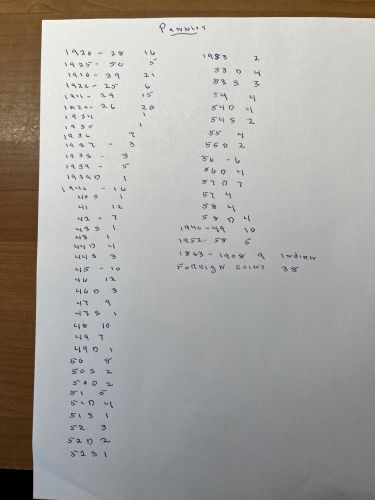 Pennies
1920 - 28 16
1925 - 50 5
1910 - 39 21
1920 - 25 6
1911 - 29 15
1920 - 26 20
1934 1
1935 1
1936 2
1937 - 3
1938 - 3
1939 - 5
1939D 1
1940 - 16
40 S 1
41 12
42 - 7
43 S 1
43 1
44 D 4
44 S 3
45 - 10
46 12
46 D 3
47 9
47 S 1
48 10
49 7
49 D 1
50 8
50 S 2
50 D 2
51 5
51 D 4
51 S 1
52 3
52 D 2
52 S 1
1953 2
53 D 4
53 S 3
54 4
54 D 4
54 S 2
55 4
55 D 2
56 - 6
56 D 4
57 D 7
57 4
58 4
58 D 4
1940 - 49 10
1952 - 58 5
1863 - 1908 9 Indian
Foreign Coins 38